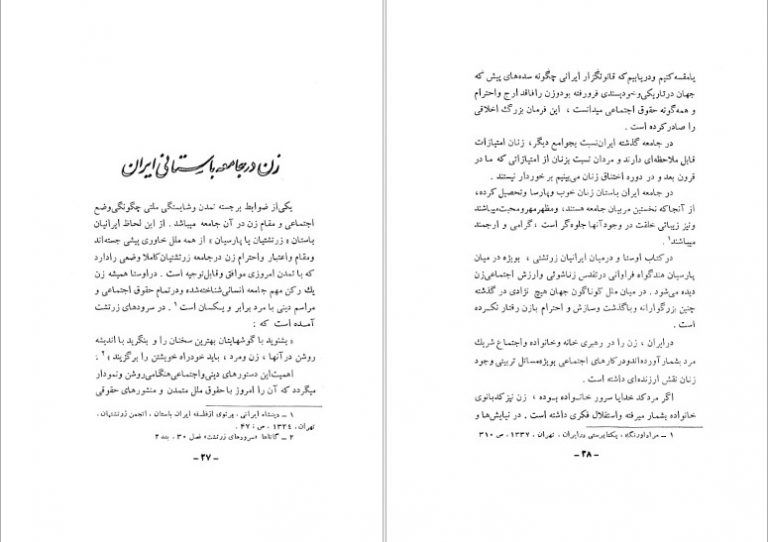 زن در جامعه باستانی ایران
یکی‌از ضوابط برجسته تمدن وشایستگی ملتی چگونگی‌وضع
اجتماعی و مقام زن در آن جامعه میباشد . از این لحاظ ایرانیان
باستان « زرتشتیان یا پارسیان » از همه ملل خاوری پیشی جسته‌اند
ومقام واعتبار واحترام زن درجامعه زرتشتیان‌کاملا وضعی رادارد
که با تمدن امروزی موافق وقابل‌توجیه است . دراوستا همیشه زن
یك رکن مهم جامعه انسانی‌شناخته‌شده ودرتمام حقوق اجتماعی و
مراسم دینی با مرد برابر و یکسان است ۱ . در سرودهای زرتشت
آمـده است که :
« بشنوید با گوشهایتان بهترین سخنان را و بنگرید با اندیشه
روشن درآنها ، زن ومرد ، باید خودراه خویشتن را برگزیند »۲ .
اهمیت‌این دستورهای دینی‌واجتماعی‌هنگامی‌روشن ونمودار
میگردد که آن را امروز با حقوق ملل متمدن و منشورهای حقوقی
۱ – دینشاه ایرانی ، پرتوی ازفلسفه ایران باستان ، انجمن زرتشتیان ،
تهران، ۱۳۳۴ ، ص : ۴۷ .
۲ – گاتاها «سرودهای زرتشت» فصل ۳۰ ، بند ۲
– ۲۷ –
یامقسه‌کنیم ودریابیم‌که قانونگزار ایرانی چگونه سده‌های پیش که
جهان درتاریکی‌وخودپسندی فرورفته بودوزن رافاقد ارج واحترام
و همه‌گونه حقوق اجتماعی میدانست ، این فرمان بزرگ اخلاقی
را صادرکرده است .
در جامعه گذشته ایران‌نسبت بجوامع دیگر، زنان امتیازات
قابل ملاحظه‌ای دارند و مردان نسبت بزنان از امتیازاتی که ما در
قرون بعد و در دوره اختناق زنان می‌بینیم بر خوردار نیستند .
در جامعه ایران باستان زنان خوب وپارسا وتحصیل کرده،
از آنجاکه نخستین مربیان جامعه هستند، ومظهرمهرومحبت‌میباشند
ونیز زیبائی خلقت در وجودآنها جلوه‌گر است، گرامی و ارجمند
میباشند۱ .
درکتاب اوستا و درمیان ایرانیان زرتشتی ، بویژه در میان
پارسیان هندگواه فراوانی درتقدس زناشوئی وارزش اجتماعی‌زن
دیده می‌شود . در میان ملل گوناگون جهان هیچ نژادی در گذشته
چنین بزرگوارانه وباگذشت وسازش و احترام بازن رفتار نکـرده
است .
درایران ، زن را در رهبری خانه وخانواده واجتماع شریك
مرد بشمار آورده‌اندودرکارهای اجتماعی بویژه‌مسائل تربیتی وجود
زنان نقش ارزنده‌ای داشته است .
اگر مردکد خدایا سرور خانـواده بـوده ، زن نیزکدبانوی
خانواده بشمار میرفته واستقلال فکری داشته است . در نیایش‌ها و
۱ – مراد اورنگ ، یکتاپرستی درایران ، تهران ، ۱۳۳۷، ص ۳۱۰
– ۲۸ –